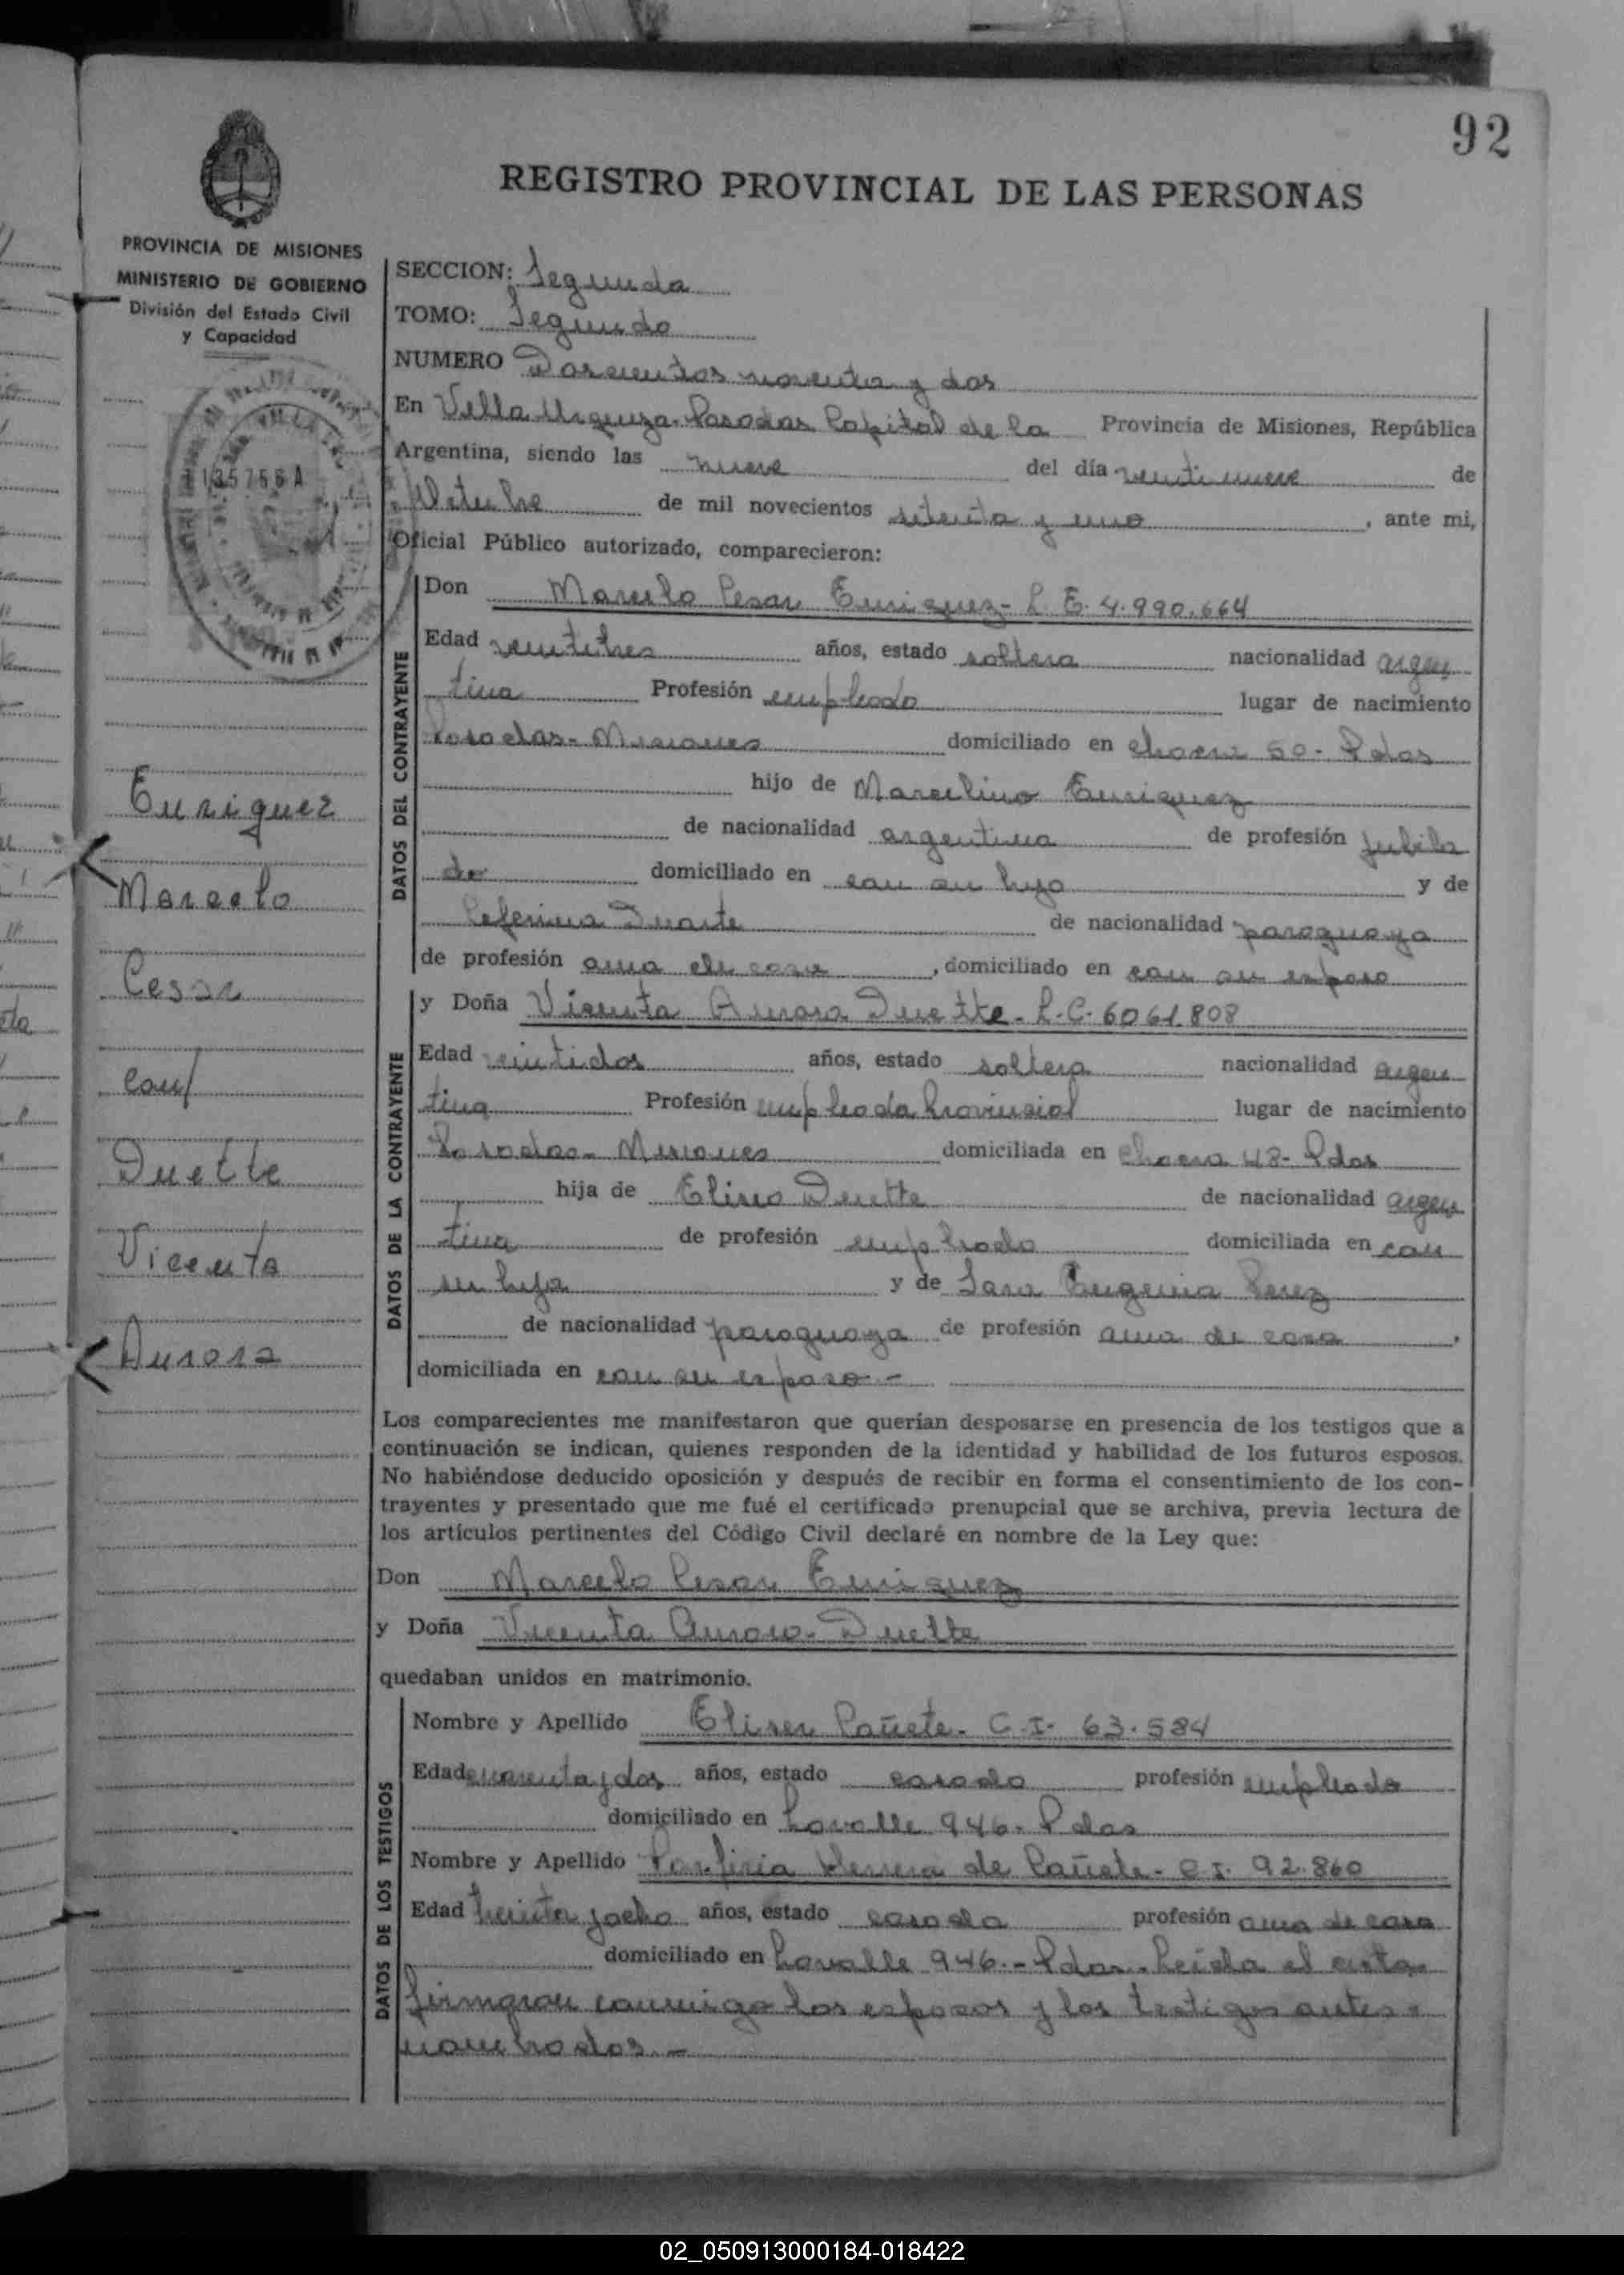 92
REGISTRO PROVINCIAL DE LAS PERSONAS
PROVINCIA DE MISIONES
MINISTERIO DE GOBIERNO
División del Estado Civil
y Capacidad
SECCION: Segunda
TOMO: Segundo
NUMERO Doscientos noventa y dos
En Villa Urquiza. Posadas Capital de la Provincia de Misiones, República
Argentina, siendo las nueve del día veintinueve de
Octubre de mil novecientos setenta y uno, ante mi,
Oficial Público autorizado, comparecieron:
DATOS DEL CONTRAYENTE
Don Marcelo Cesar Enriquez - L. E. 4.990.664
Edad veintitres años, estado soltero nacionalidad argen
tina Profesión empleado lugar de nacimiento
Posadas - Misiones domiciliado en chacra 50 - Pdas
hijo de Marcelino Enriquez
de nacionalidad argentina de profesión jubila
do domiciliado en con su hijo y de
Ceferina Duarte de nacionalidad paraguaya
de profesión ama de casa, domiciliado en con su esposo
DATOS DE LA CONTRAYENTE
y Doña Vicenta Aurora Duette - L. C. 6061.808
Edad veintidos años, estado soltera nacionalidad argen
tina Profesión empleada Provincial lugar de nacimiento
Posadas - Misiones domiciliada en chacra 48 - Pdas
hija de Eliseo Duette de nacionalidad argen
tina de profesión empleado domiciliada en con
su hija y de Sara Eugenia Perez
de nacionalidad paraguaya de profesión ama de casa,
domiciliada en con su esposo -
Los comparecientes me manifestaron que querían desposarse en presencia de los testigos que a
continuación se indican, quienes responden de la identidad y habilidad de los futuros esposos.
No habiéndose deducido oposición y después de recibir en forma el consentimiento de los con-
trayentes y presentado que me fué el certificado prenupcial que se archiva, previa lectura de
los artículos pertinentes del Código Civil declaré en nombre de la Ley que:
Don Marcelo Cesar Enriquez
y Doña Vicenta Aurora - Duette
quedaban unidos en matrimonio.
DATOS DE LOS TESTIGOS
Nombre y Apellido Eliser Cañete - C. I. 63.584
Edad cuarenta y dos años, estado casado profesión empleado
domiciliado en Lavalle 946 - Pdas
Nombre y Apellido Porfiria Herrera de Cañete - C. I. 92.860
Edad treinta y ocho años, estado casada profesión ama de casa
domiciliado en Lavalle 946 - Pdas. Leída el acta
firmaron conmigo los esposos y los testigos antes
nombrados. -
Enriquez
Marcelo
Cesar
con/
Duette
Vicenta
Aurora
02_050913000184-018422